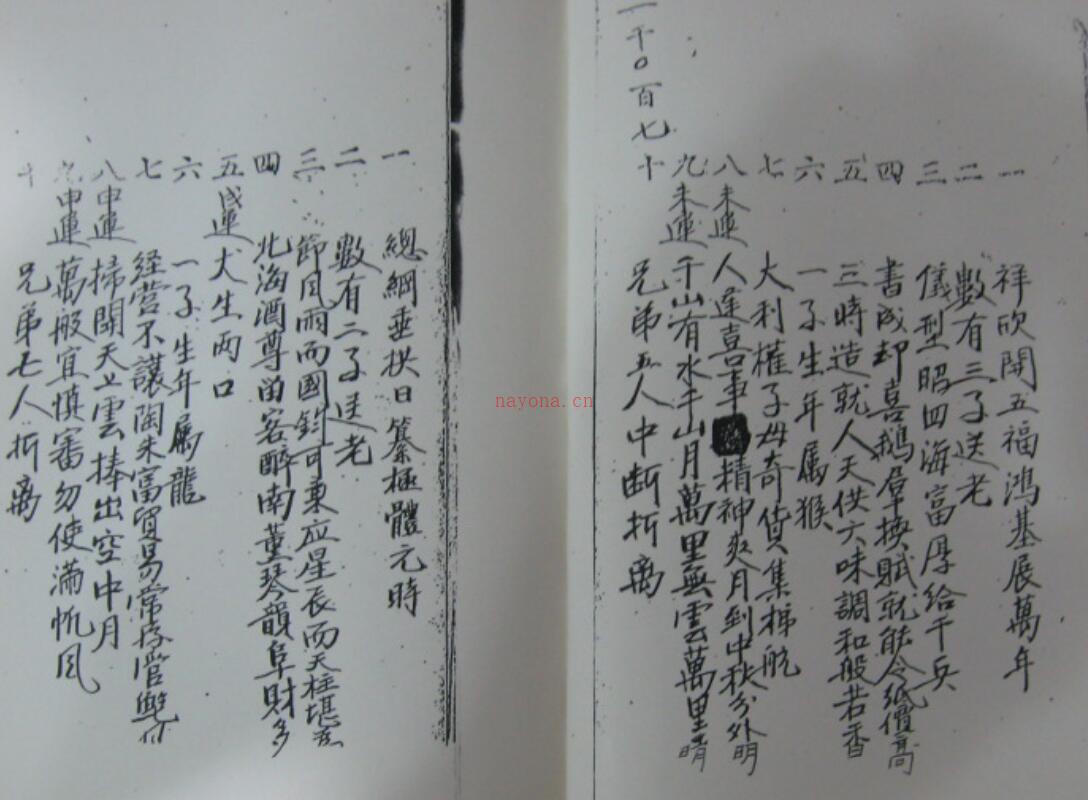 一千0百七
一 祥欣開五福鴻基展萬年
二 數有三子送老
三 儀型昭四海富厚給千兵
四 書成却喜鵝群換賦就能令紙價高
五 三時造就人天供六味調和般若香
六 一子生年属猴
七 大利權子母奇貨集梯航
八 未運 人逢喜事精神爽月到中秋分外明
九 未運 千山有水千山月萬里無雲萬里晴
十 兄弟五人中断折离
一 總綱垂拱日纂極體元時
二 數有二子送老
三 節風雨而國鈞可秉应星辰而天柱堪
四 北海酒尊留客醉南薰琴韻阜財多
五 戌運 犬生两口
六 一子生年属龍
七 経营不讓陶朱富貿易常
八 申運 掃開天上雲捧出空中月
九 申運 萬般宜慎審勿使滿帆风
十 兄弟七人折离
nayona.cn